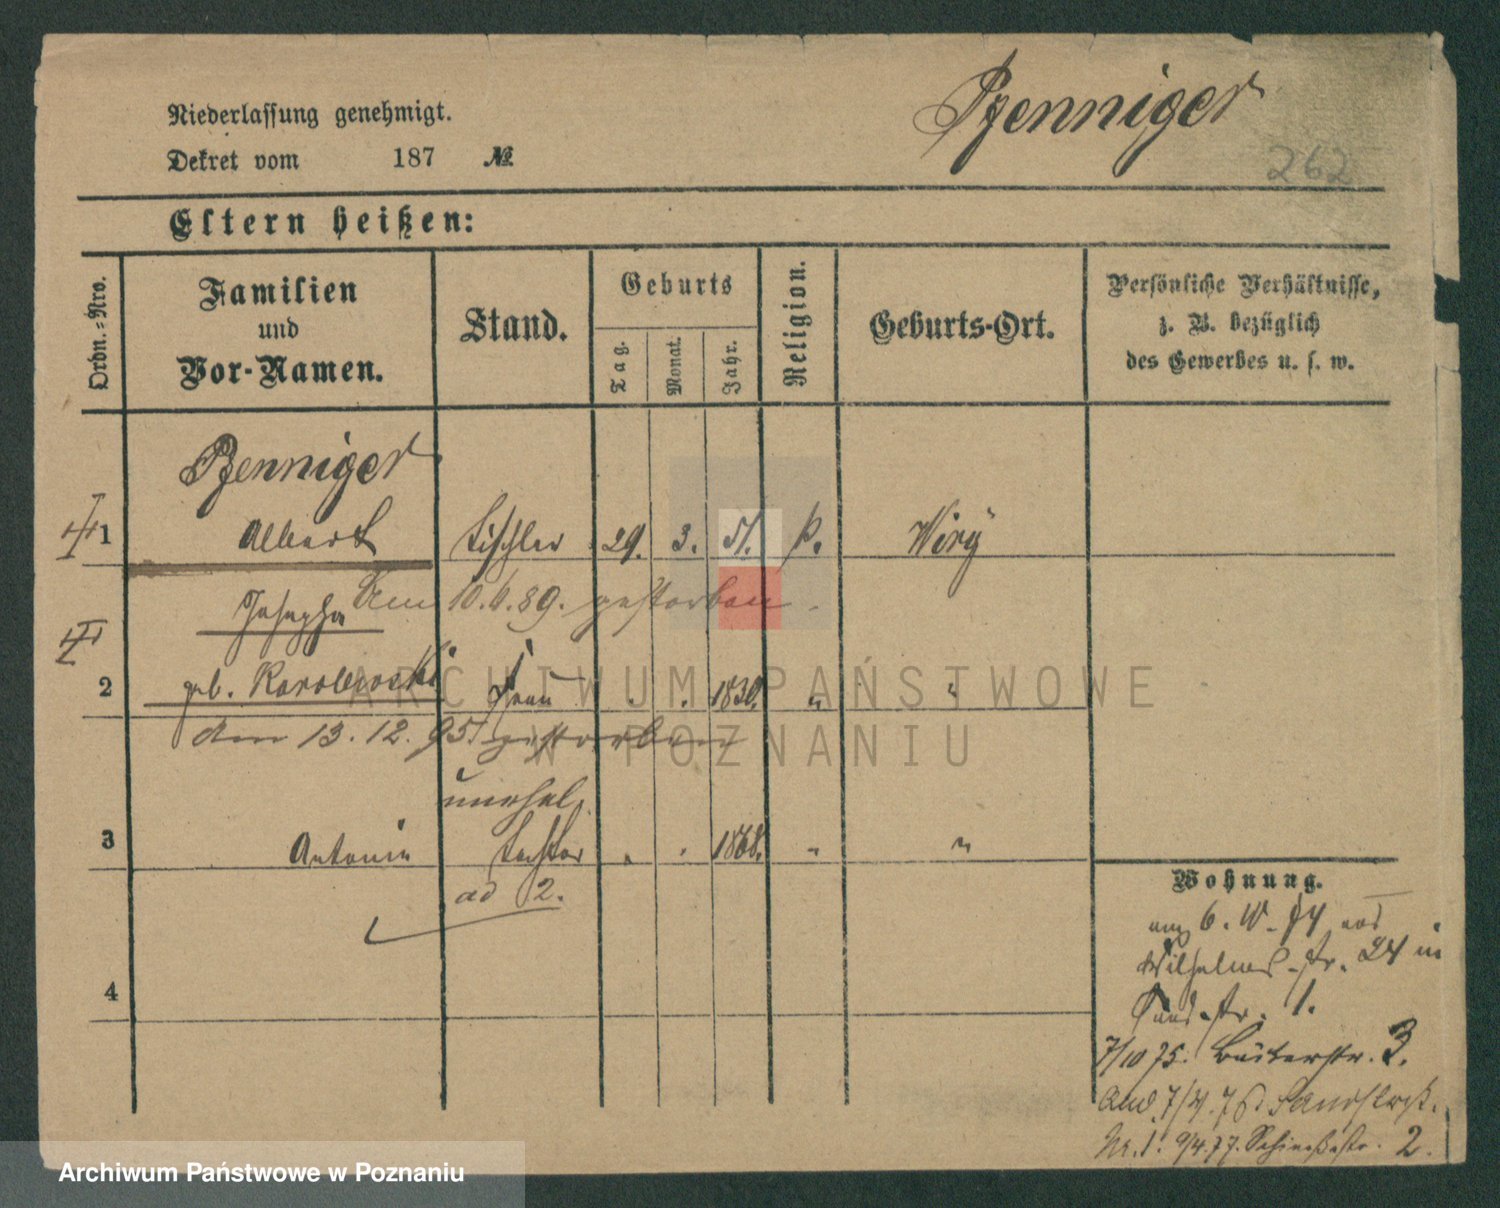 Pfenniger
262
Niederlassung genehmigt.
Dekret vom 187 №
Eltern heißen:
Ordn.-Nro.
Familien
und
Vor-Namen.
Stand.
Geburts
Tag.
Monat.
Jahr.
Religion.
Geburts-Ort.
Persönliche Verhältnisse,
z. B. bezüglich
des Gewerbes u. s. w.
Pfenniger
1 Albert Tischler 29. 3. 51. k. Wiry
Josepha
Am 10.6.89. gestorben.
2 geb. Karolewski Frau " " 1830. " "
Am 13.12.95 gestorben
unehel.
3 Antonie Tochter " " 1868. " "
ad 2.
4
Wohnung.
6. 74 aus
Wilhelms-str. 24 in
Sand-str. 1.
7/10 75. Büttelstr. 3.
And. 7/4. 76 Sandstraß.
Nr. 1. 9/4.77. Schießstr. 2.
ARCHIWUM PAŃSTWOWE
W POZNANIU
Archiwum Państwowe w Poznaniu